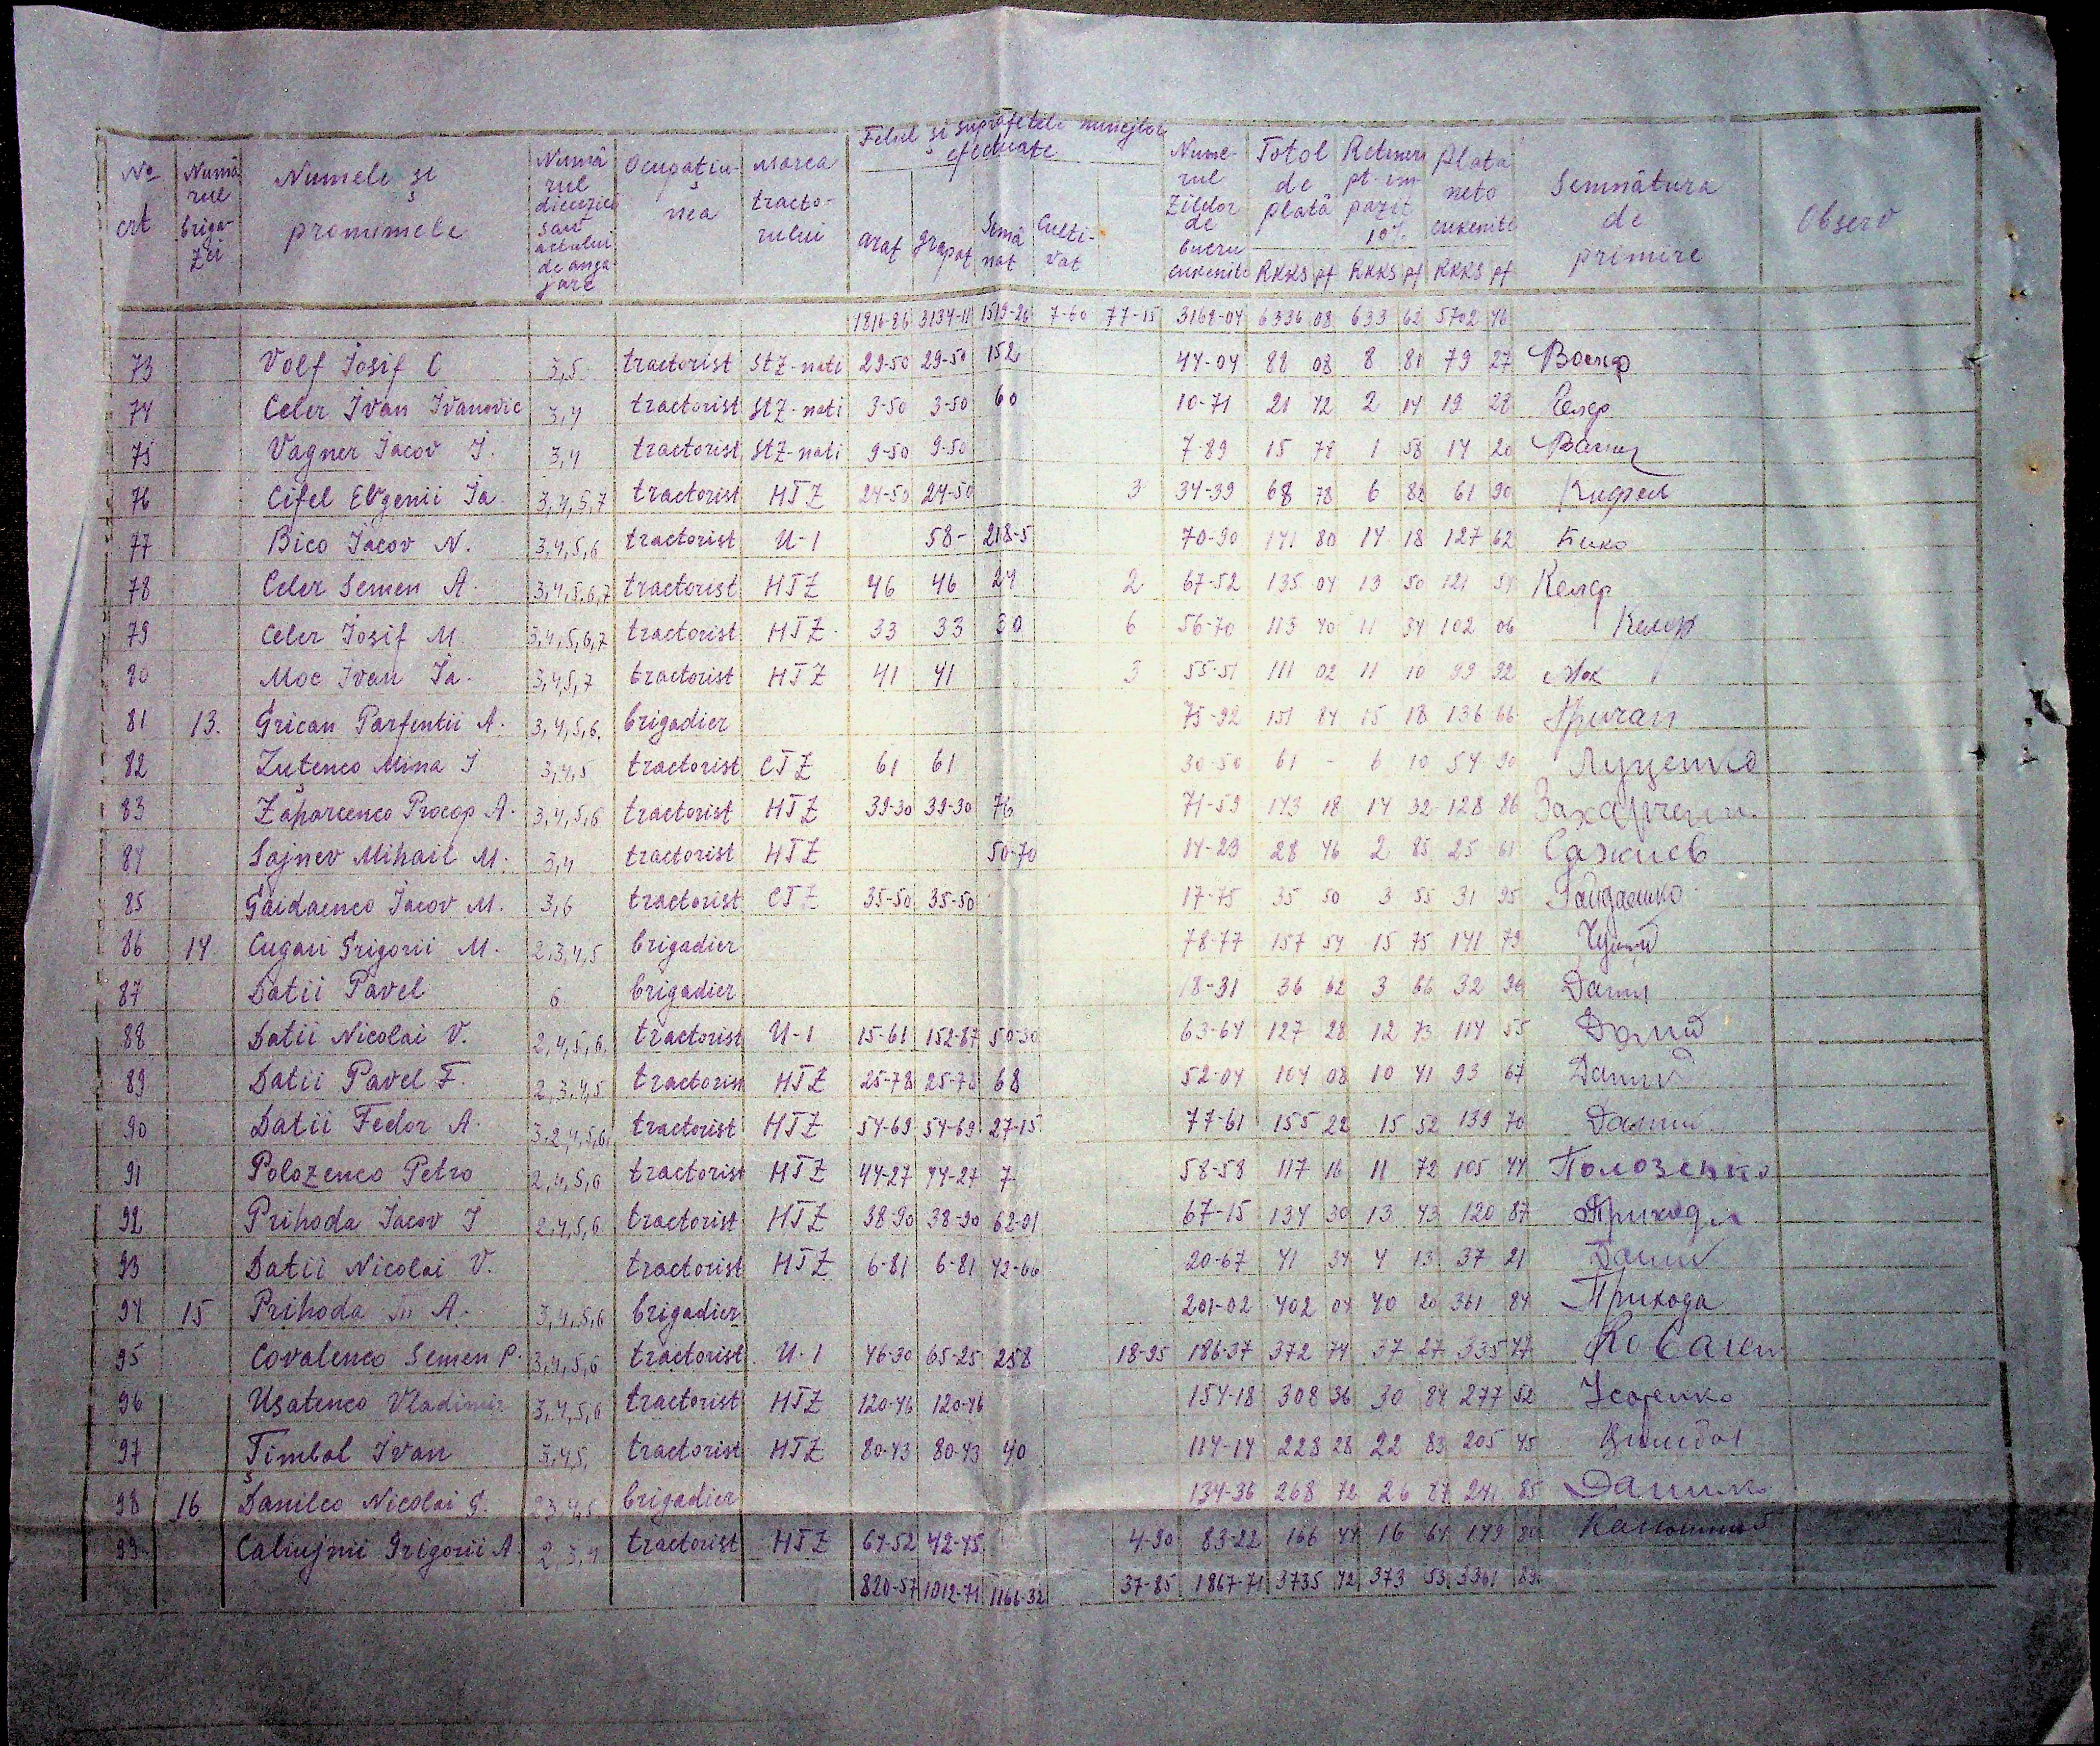 Felul și suprafetele muncilor efectuate
No crt Numărul brigăzei Numele și pronumele Numărul Ocupațiunea Marca tractorului arat grapat Sămănat Cultivat Numerul Zilelor de lucru cuvenite Totol de plată RKKS pf pt. im 10% RKKS pf Plata neto cuvenite RKKS pf Semnătura de primire Observ
1816-86 3134-11 1519-26 7-60 77-15 3168-04 6336 08 633 62 5702 46
73 Volf Iosif C 3,5 tractorist StZ-nati 29-50 29-50 152 44-04 88 08 8 81 79 27 Вольф
74 Celer Ivan Ivanovic 3,4 tractorist StZ-nati 3-50 3-50 60 10-71 21 42 2 14 19 28 Келер
75 Vagner Iacov I. 3,4 tractorist StZ-nati 9-50 9-50 7-89 15 78 1 58 14 20
76 Cifel Evgenii Ia 3,4,5,7 tractorist HTZ 24-50 24-50 3 34-39 68 78 6 88 61 90 Кифель
77 Bico Iacov N. 3,4,5,6 tractorist U-1 58- 218-5 70-90 141 80 14 18 127 62 Бико
78 Celer Semen A. 3,4,5,6,7 tractorist HTZ 46 46 24 2 67-52 135 04 13 50 121 54 Келер
79 Celer Iosif M. 3,4,5,6,7 tractorist HTZ 33 33 30 6 56-70 113 40 11 34 102 06 Келер
80 Moc Ivan Ia. 3,4,5,7 tractorist HTZ 41 41 3 55-51 111 02 11 10 99 92 Мок
81 13. Grican Parfentii A. 3,4,5,6. brigadier 75-92 151 84 15 18 136 66 Гричан
82 Luțenco Mina I 3,4,5 tractorist CTZ 61 61 30-50 61 - 6 10 54 90 Луценко
83 Zaharcenco Procop A. 3,4,5,6 tractorist HTZ 39-30 39-30 76 71-59 143 18 14 32 128 86 Захарченко
84 Sajnev Mihail M. 3,4 tractorist HTZ 50-70 14-23 28 46 2 85 25 61 Сажнев
85 Gaidaenco Iacov M. 3,6 tractorist CTZ 35-50 35-50 17-75 35 50 3 55 31 95 Гайдаенко
86 14. Cugai Grigorii M. 2,3,4,5 brigadier 78-77 157 54 15 75 141 79
87 Datii Pavel 6 brigadier 18-31 36 62 3 66 32 96 Датий
88 Datii Nicolai V. 2,4,5,6. tractorist U-1 15-61 152-87 50-30 63-64 127 28 12 73 114 55 Датий
89 Datii Pavel F. 2,3,4,5 tractorist HTZ 25-78 25-78 68 52-04 104 08 10 41 93 67 Датий
90 Datii Fedor A. 3,2,4,5,6. tractorist HTZ 54-69 54-69 27-15 77-61 155 22 15 52 139 70 Датий
91 Polozenco Petro 2,4,5,6 tractorist HTZ 44-27 44-27 7 58-58 117 16 11 72 105 44 Полозенко
92 Prihoda Iacov I 2,4,5,6 tractorist HTZ 38-90 38-90 62-01 67-15 134 30 13 43 120 87 Прихода
93 Datii Nicolai V. tractorist HTZ 6-81 6-81 42-66 20-67 41 34 4 13 37 21 Датий
94 15 Prihoda A. 3,4,5,6 brigadier 201-02 402 04 40 20 361 84 Прихода
95 Covalenco Semen P. 3,4,5,6 tractorist U-1 46-30 65-25 258 18-95 186-37 372 74 37 27 335 47
96 Usatenco Vladimir 3,4,5,6 tractorist HTZ 120-46 120-46 154-18 308 36 30 84 277 52 Усатенко
97 Țimbal Ivan 3,4,5, tractorist HTZ 80-43 80-43 40 114-14 228 28 22 83 205 45 Цимбал
98 16 Danilco Nicolai G. 2,3,4,5 brigadier 134-36 268 72 26 87 241 85
99 Caliujnii Grigorii A 2,3,4 tractorist HTZ 64-52 42-45 4-90 83-22 166 44 16 64 149 80
820-57 1012-71 1166-32 37-85 1867-71 3735 42 373 53 3361 89